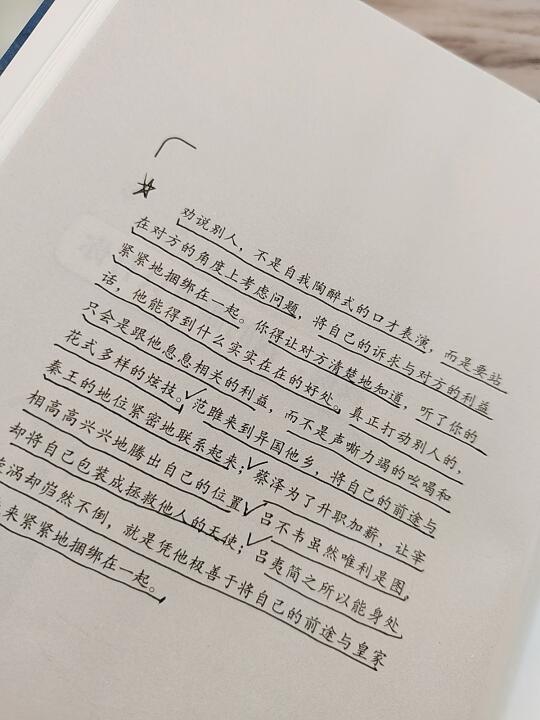 劝说别人，不是自我陶醉式的口才表演，而是要站
在对方的角度上考虑问题，将自己的诉求与对方的利益
紧紧地捆绑在一起。你得让对方清楚地知道，听了你的
话，他能得到什么实实在在的好处。真正打动别人的，
只会是跟他息息相关的利益，而不是声嘶力竭的吆喝和
花式多样的炫技。范雎来到异国他乡，将自己的前途与
秦王的地位紧密地联系起来；蔡泽为了升职加薪，让宰
相高高兴兴地腾出自己的位置；吕不韦虽然唯利是图，
却将自己包装成拯救他人的天使；吕夷简之所以能身处
涡却岿然不倒，就是凭他极善于将自己的前途与皇家
来紧紧地捆绑在一起。